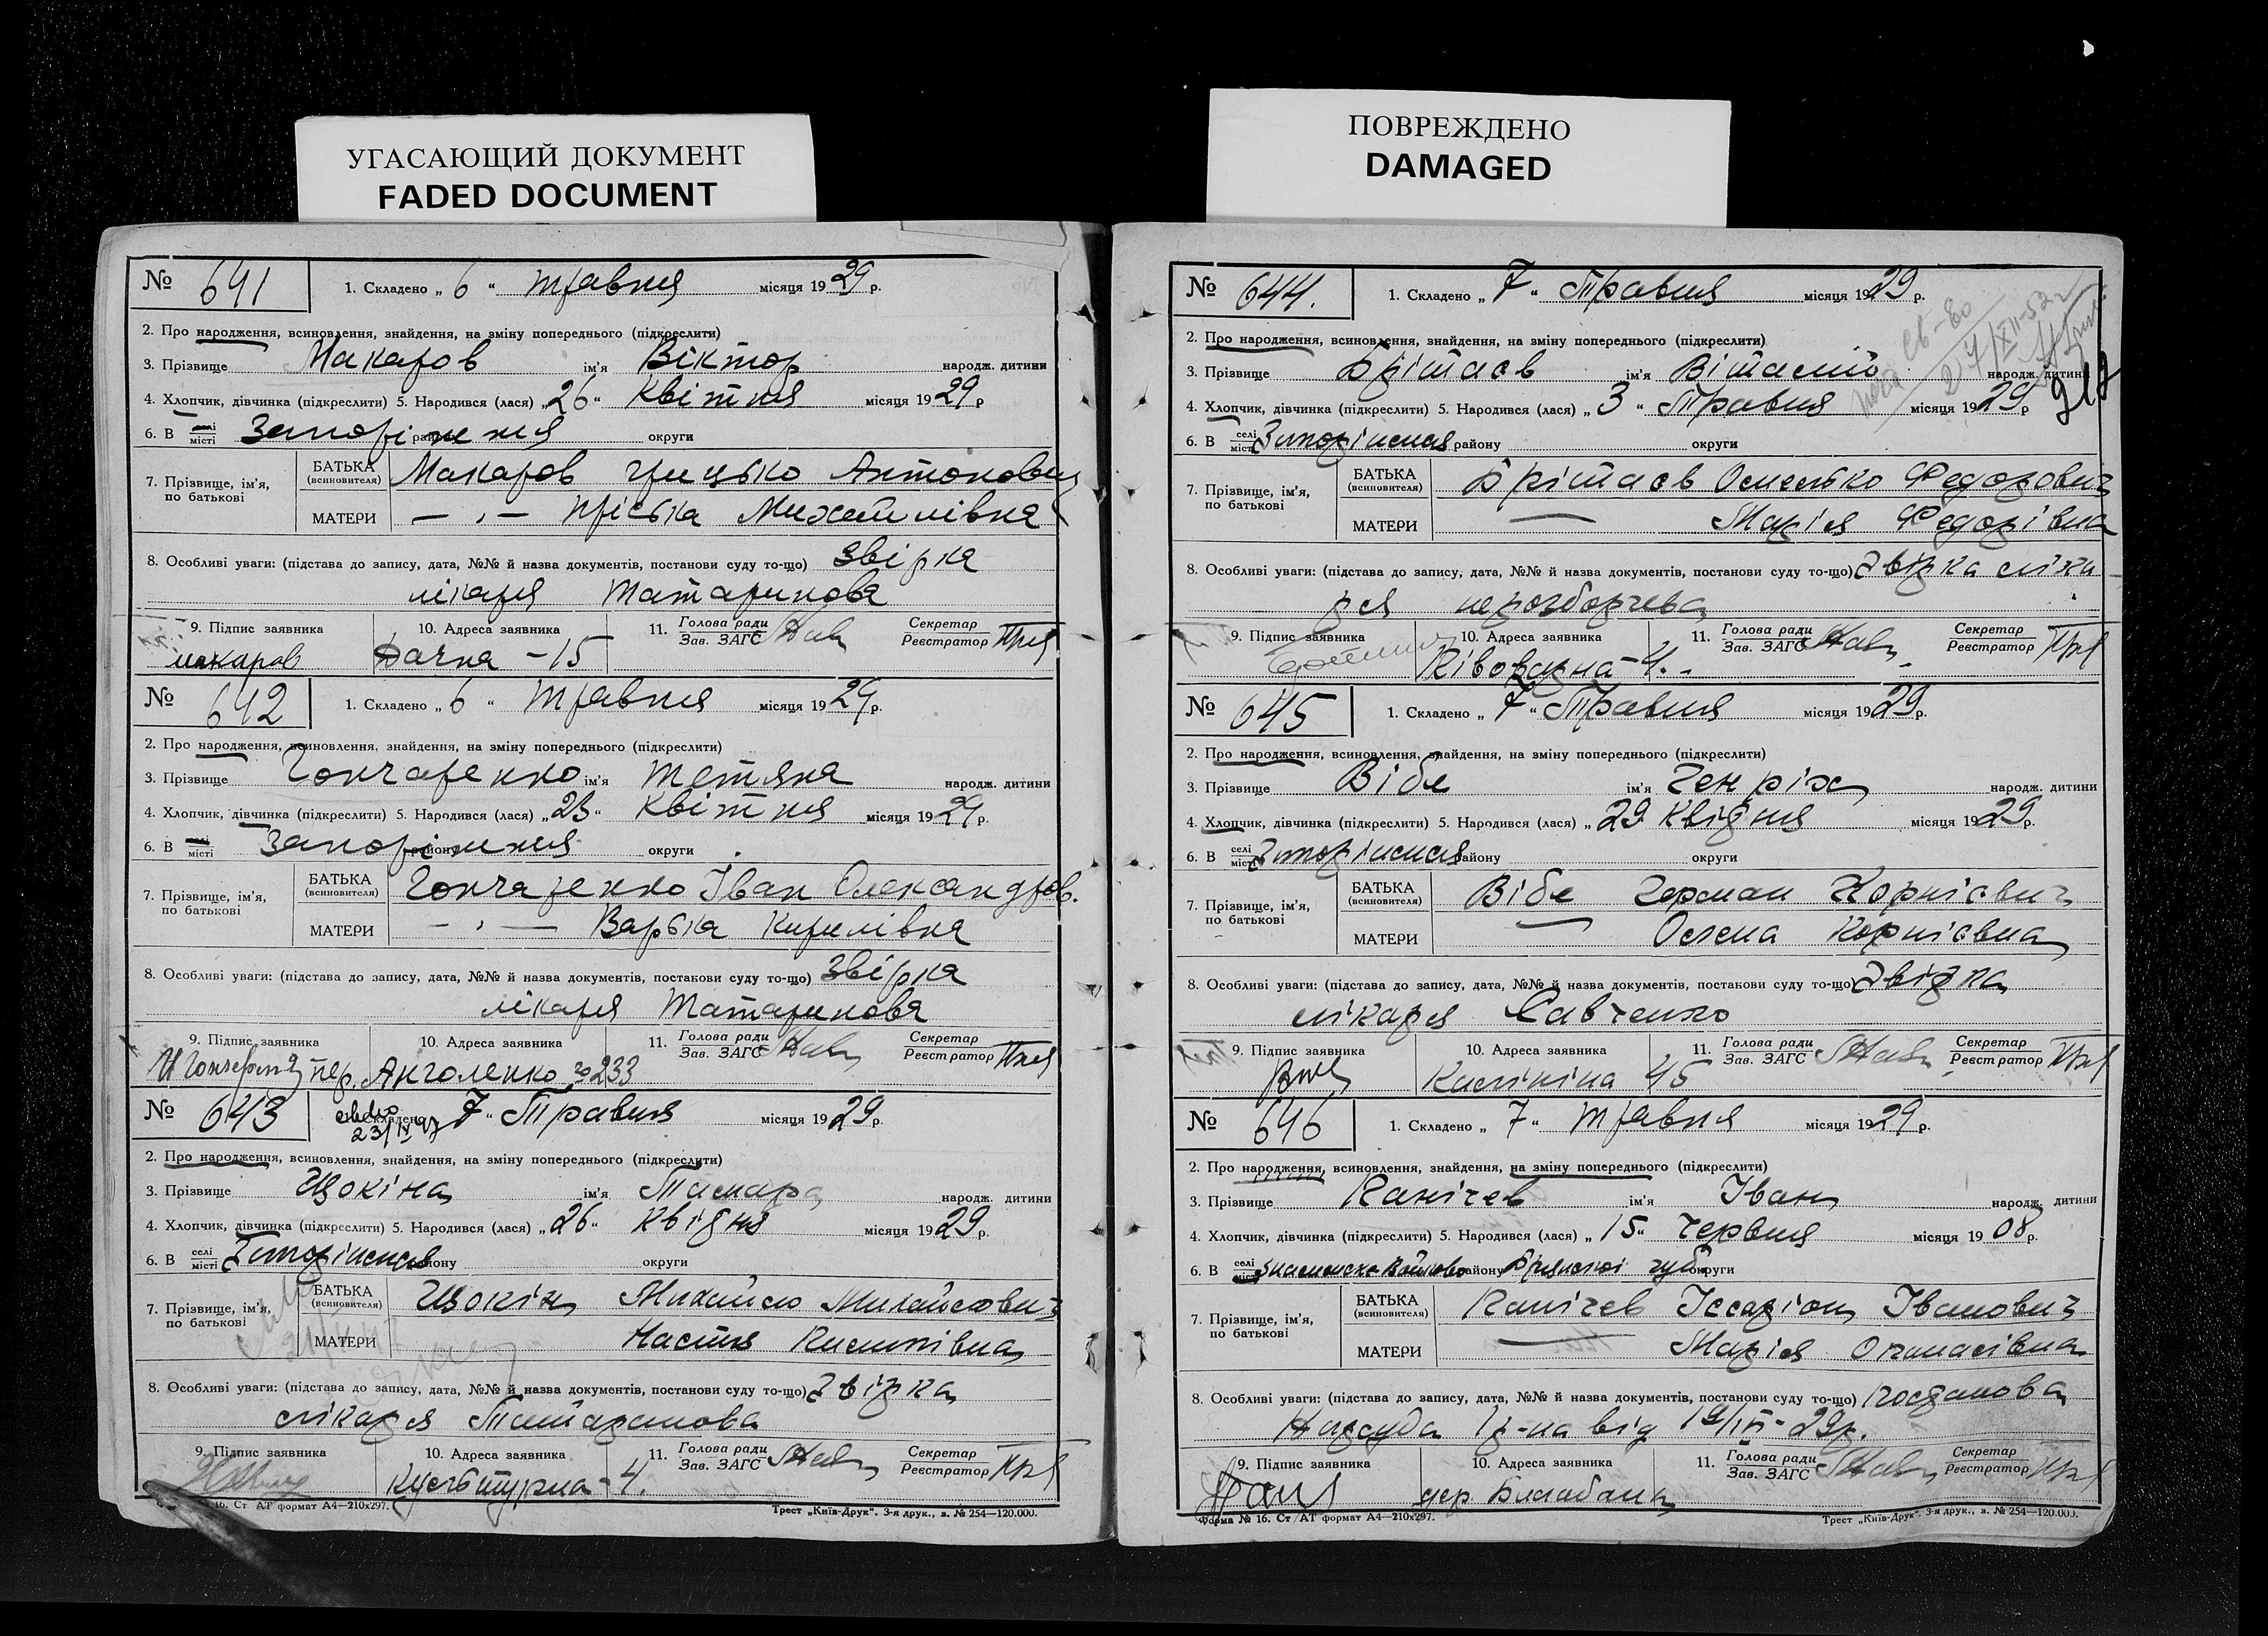 УГАСАЮЩИЙ ДОКУМЕНТ
FADED DOCUMENT
ПОВРЕЖДЕНО
DAMAGED
№ 641 1. Складено „ 6 “ травня місяця 1929 р.
2. Про народження, всиновлення, знайдення, на зміну попереднього (підкреслити)
3. Прізвище Макаров ім’я Віктор народж. дитини
4. Хлопчик, дівчинка (підкреслити) 5. Народився (лася) „26“ Квітня місяця 1929 р
6. В селі місті Запоріжжя району округи
7. Прізвище, ім’я, по батькові БАТЬКА (всиновителя) Макаров Грицько Антонович
МАТЕРИ — „ — Пріська Михайлівна
8. Особливі уваги: (підстава до запису, дата, №№ й назва документів, постанови суду то-що) Звірка
лікаря Татаринова
9. Підпис заявника 10. Адреса заявника 11. Голова ради Зав. ЗАГС Секретар Реєстратор
Макаров Дачна - 15
№ 642 1. Складено „ 6 “ травня місяця 1929 р.
2. Про народження, всиновлення, знайдення, на зміну попереднього (підкреслити)
3. Прізвище Гончаренко ім’я Тетяна народж. дитини
4. Хлопчик, дівчинка (підкреслити) 5. Народився (лася) „23“ Квітня місяця 1929 р.
6. В селі місті Запоріжжя району округи
7. Прізвище, ім’я, по батькові БАТЬКА (всиновителя) Гончаренко Іван Олександров.
МАТЕРИ — „ — Варька Кирилівна
8. Особливі уваги: (підстава до запису, дата, №№ й назва документів, постанови суду то-що) Звірка
лікаря Татаринова
9. Підпис заявника 10. Адреса заявника 11.Голова ради Зав. ЗАГС Секретар Реєстратор
пер. Анголенко № 233
№ 643 1. Складено 7 “ Травня місяця 1929 р.
2. Про народження, всиновлення, знайдення, на зміну попереднього (підкреслити)
3. Прізвище Щокіна ім’я Тамара народж. дитини
4. Хлопчик, дівчинка (підкреслити) 5. Народився (лася) „26“ Квідня місяця 1929 р.
6. В селі місті Запоріжжя району округи
7. Прізвище, ім’я, по батькові БАТЬКА (всиновителя) Щокін Михайло Михайлович
МАТЕРИ Настя Килипівна
8. Особливі уваги: (підстава до запису, дата, №№ й назва документів, постанови суду то-що) Звірка
лікаря Татаранова
9. Підпис заявника 10. Адреса заявника 11. Голова ради Зав. ЗАГС Секретар Реєстратор
Культурна - 4.
16. Ст АТ формат А4—210х297. Трест „Київ-Друк“. 3-я друк., з. № 254—120.000.
№ 644. 1. Складено „ 7 “ Травня місяця 1929 р.
2. Про народження, всиновлення, знайдення, на зміну попереднього (підкреслити)
3. Прізвище Брітаєв ім’я Віталій народж. дитини
4. Хлопчик, дівчинка (підкреслити) 5. Народився (лася) „ 3 “ Травня місяця 1929 р
6. В селі місті Запоріжжя району округи
7. Прізвище, ім’я, по батькові БАТЬКА (всиновителя) Брітаєв Омелько Федорович
МАТЕРИ — Марія Федорівна
8. Особливі уваги: (підстава до запису, дата, №№ й назва документів, постанови суду то-що) Звірка ліка
ря нерозборчева
9. Підпис заявника 10. Адреса заявника 11. Голова ради Зав. ЗАГС Секретар Реєстратор
Ківоварна - 4. -
№ 645 1. Складено „ 7 “ Травня місяця 1929 р.
2. Про народження, всиновлення, знайдення, на зміну попереднього (підкреслити)
3. Прізвище Вібе ім’я Генріх народж. дитини
4. Хлопчик, дівчинка (підкреслити) 5. Народився (лася) „ 29 Квідня місяця 1929 р.
6. В селі місті Запоріжжя району округи
7. Прізвище, ім’я, по батькові БАТЬКА (всиновителя) Вібе Герман Корнієвич
МАТЕРИ — Олена Корнієвна
8. Особливі уваги: (підстава до запису, дата, №№ й назва документів, постанови суду то-що) Звірка
лікаря Савченко
9. Підпис заявника 10. Адреса заявника 11. Голова ради Зав. ЗАГС Секретар Реєстратор
Калініна 45
№ 646 1. Складено „ 7 “ травня місяця 1929 р.
2. Про народження, всиновлення, знайдення, на зміну попереднього (підкреслити)
3. Прізвище Канічев ім’я Іван народж. дитини
4. Хлопчик, дівчинка (підкреслити) 5. Народився (лася) „ 15“ Червня місяця 1908 р.
6. В селі місті району Брянської губ округи
7. Прізвище, ім’я, по батькові БАТЬКА (всиновителя) Канічев Іссаріон Іванович
МАТЕРИ — Марія Опанасівна
8. Особливі уваги: (підстава до запису, дата, №№ й назва документів, постанови суду то-що) Постанова
Нарсуда Ір-на від 19/IV-29р.
9. Підпис заявника 10. Адреса заявника 11. Голова ради Зав. ЗАГС Секретар Реєстратор
Форма № 16. Ст АТ формат А4—210х297. Трест „Київ-Друк“. 3-я друк., з. № 254—120.000.